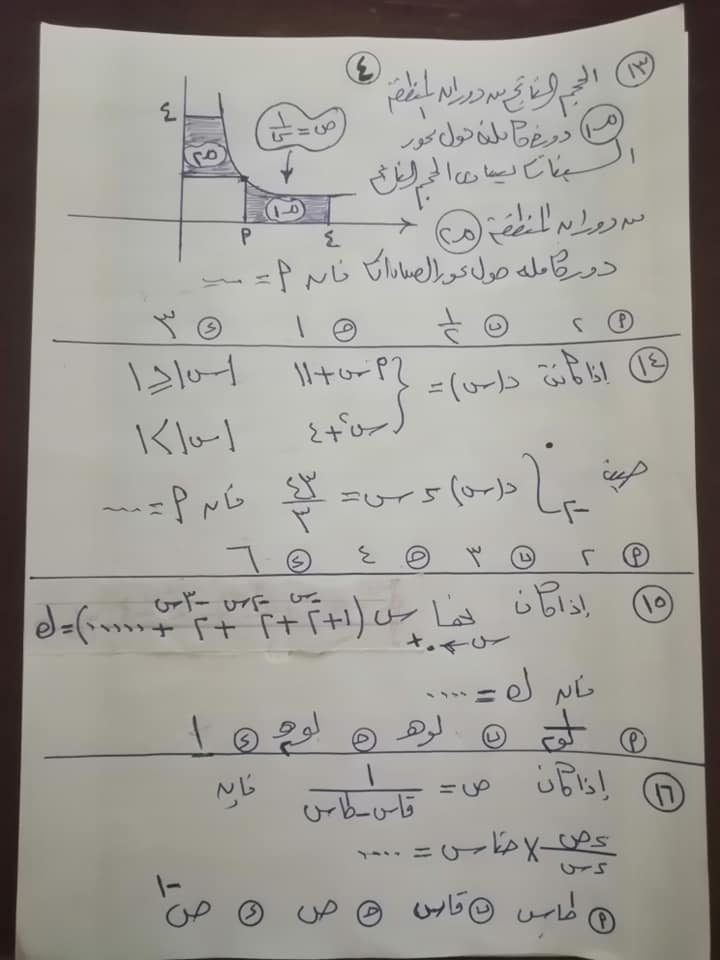 ٤
١٣ الحجم الناتج من دوران المنطقة
م١ دورة كاملة حول محور
السينات يساوى الحجم الناتج
من دوران المنطقة م٢
دورة كاملة حول محور الصادات فإن P = ....
٤
ص = ١/س
م٢
م١
P ٤
P ٢ ب ١/٢ ج ١ د ٣
١٤ إذا كانت د(س) = { P س + ١١ |س| ≥ ١
س٢ + ٤ |س| < ١
حيث ∫ د(س) ءس = ٤٣/٣ فإن P = ....
٠
-٢
P ٢ ب ٣ ج ٤ د ٦
١٥ إذا كان نها س (١ + ٢^-س + ٢^-٢س + ٢^-٣س + ......) = ل
س ← ٠+
فإن ل = ....
P ١/لو٢ ب لوهـ ج لو٢هـ د ١
١٦ إذا كان ص = ١/(قاس - طاس) فإن
ءص/ءس × حتاس = ....
P طاس ب قاس ج ص د ص^-١